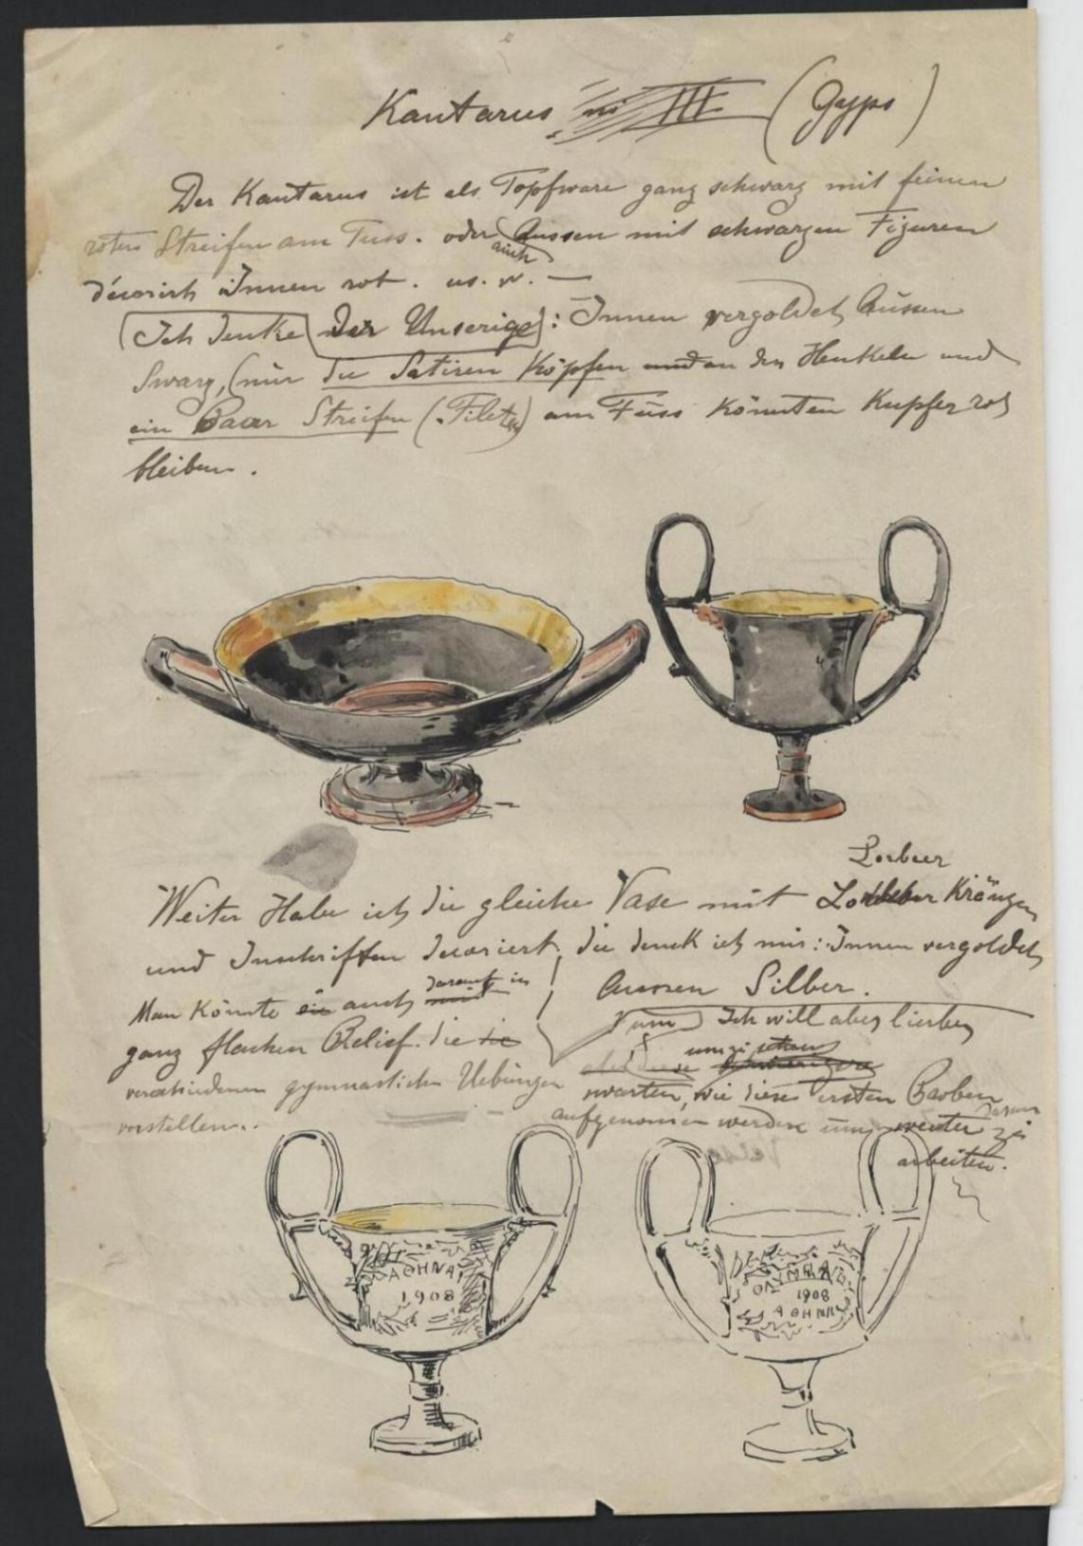 Kantarus III (Gyps)
Der Kantarus ist als Topfware ganz schwarz mit feinen
roten Streifen am Fuss. oder Aussen mit schwarzen Figuren
auch
décorirt Innen rot. us. w. —
Ich denke der Unserige: Innen vergoldet Aussen
Swarz, (nur die Satiren Köpfen und an den Henkeln und
ein Paar Streifen (Filets) am Fuss könnten Kupfer rot
bleiben.
Lorbeer
Weiter Habe ich die gleiche Vase mit Kränzen
und Inschriften decoriert, die denk ich mir: Innen vergoldet
Aussen Silber.
Man könnte ein auch darauf in
ganz flachen Relief. die die
verschiedenen gymnastischen Uebungen
vorstellen..
Ich will aber lieber
umzi schauen
warten, wie diese ersten Proben
aufgenommen werden um weiter zu
arbeiten.
ΑΘΗΝΑΙ
1908
1908
ΑΘΗΝΑΙ